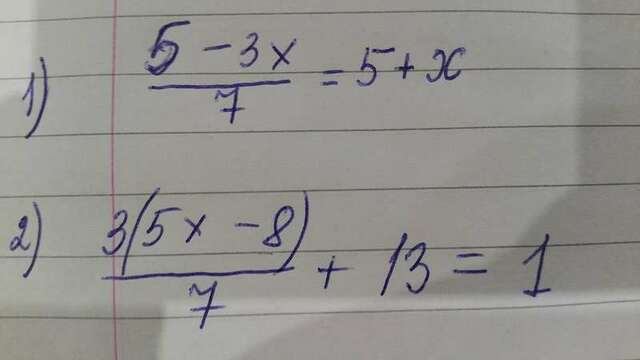 1) (5 - 3x)/7 = 5 + x
2) 3(5x - 8)/7 + 13 = 1